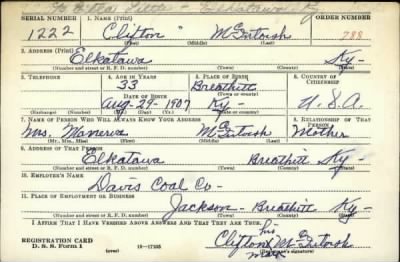 Elkatawa Ky
SERIAL NUMBER 1. NAME (Print) ORDER NUMBER
1222 Clifton " McIntosh 788
(First) (Middle) (Last)
2. ADDRESS (Print)
Elkatawa Ky-
(Number and street or R. F. D. number) (Town) (County) (State)
3. TELEPHONE 4. AGE IN YEARS 5. PLACE OF BIRTH 6. COUNTRY OF CITIZENSHIP
33 Breathitt
DATE OF BIRTH (Town or county)
Aug-29-1907 Ky- U.S.A.
(Exchange) (Number) (Mo.) (Day) (Yr.) (State or country)
7. NAME OF PERSON WHO WILL ALWAYS KNOW YOUR ADDRESS 8. RELATIONSHIP OF THAT PERSON
Mrs. Manerva McIntosh Mother
(Mr., Mrs., Miss) (First) (Middle) (Last)
9. ADDRESS OF THAT PERSON
Elkatawa Breathitt Ky-
(Number and street or R. F. D. number) (Town) (County) (State)
10. EMPLOYER'S NAME
Davis Coal Co-
11. PLACE OF EMPLOYMENT OR BUSINESS
Jackson- Breathitt Ky-
(Number and street or R. F. D. number) (Town) (County) (State)
I AFFIRM THAT I HAVE VERIFIED ABOVE ANSWERS AND THAT THEY ARE TRUE.
his
REGISTRATION CARD Clifton X McIntosh
D. S. S. Form 1 (over) 16-17105 mark